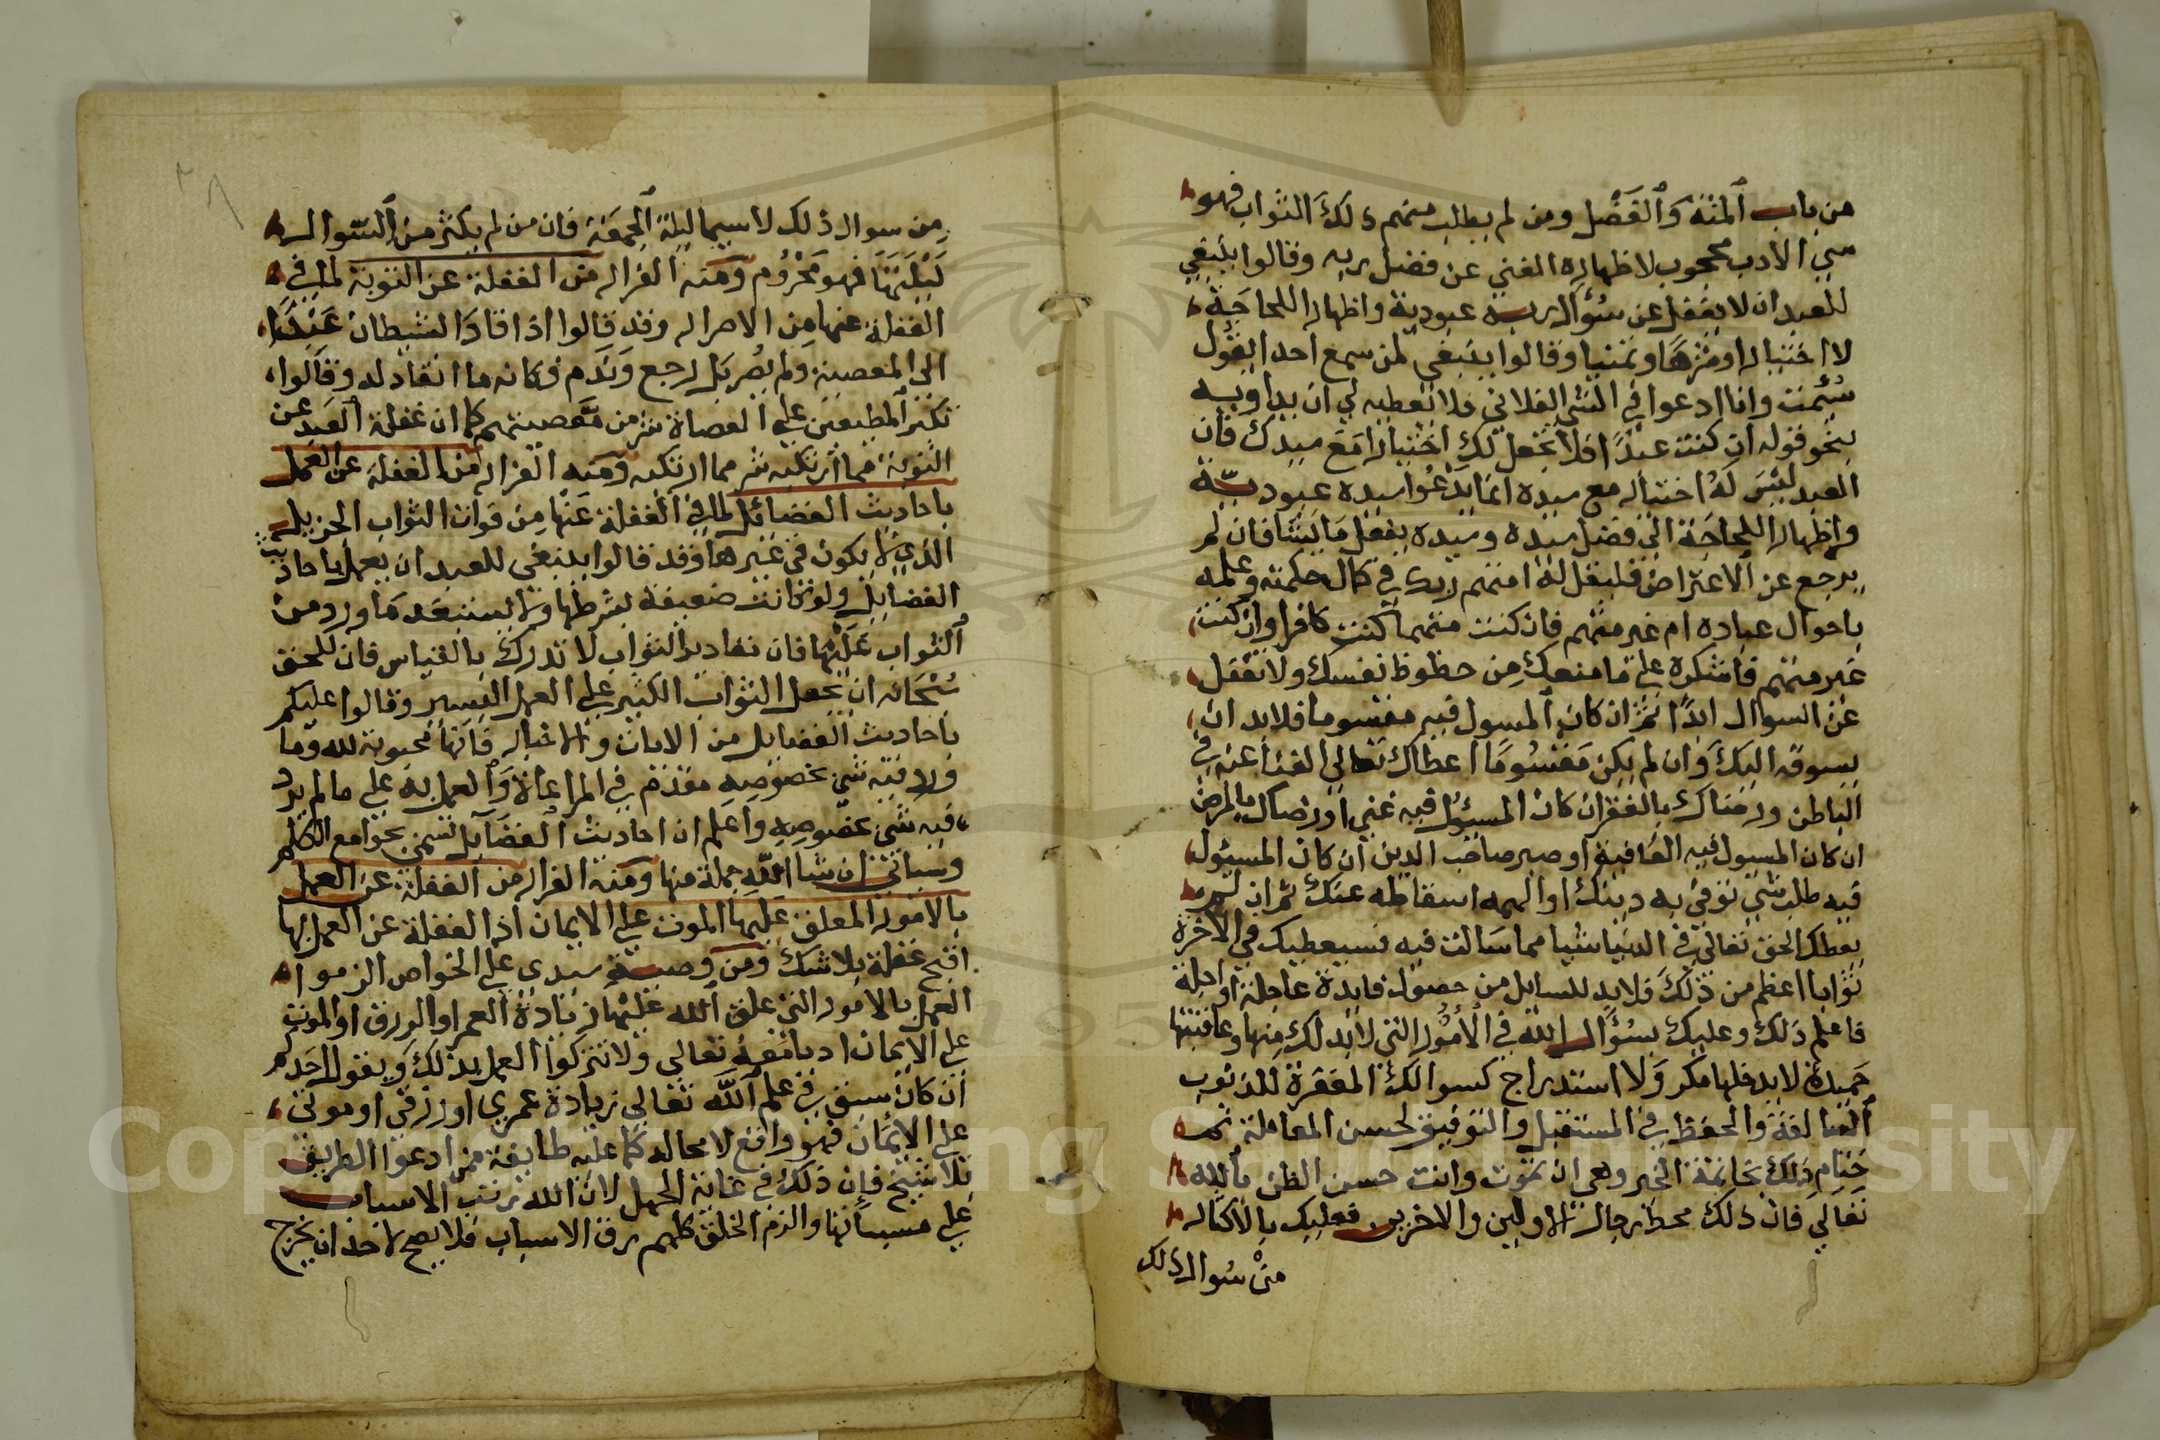 من باب المنة والفضل ومن لم يطلب منهم ذلك الثواب فهو
سيي الادب محجوب لاظهاره الغني عن فضل ربه وقالوا ينبغي
للعبد ان لا يغفل عن سؤال ربه عبودية واظهارا للحاجة
لا اختيارا وشرها وتمنيا وقالوا ينبغي لمن سمع احدا يقول
سئمت وانا ادعوا في الشي الفلاني فلا نعطيه لي ان يداويه
بنحو قوله ان كنت عبدا فلا تجعل لك اختيارا مع سيدك فان
العبد ليس له اختيار مع سيده انما يدعوا سيده عبودية
واظهارا للحاجة الي فضل سيده وسيده يفعل ما يشا فان لم
يرجع عن الاعتراض فليقل له امتهم ربك في كمال حكمته وعلمه
باحوال عباده ام غير متهم فان كنت متهما كنت كافرا وان كنت
غير متهم فاشكره علي ما منعك من حظوظ نفسك ولا تغفل
عن السوال ابدا ثم ان كان المسول فيه مقسوما فلا بد ان
يسوقه اليك وان لم يكن مقسوما اعطاك تعالي الغنا عنه في
الباطن ورضاك بالفقر ان كان المسؤل فيه غني او رضاك بالمرض
ان كان المسول فيه العافية او صبر صاحب الدين ان كان المسئول
فيه طلب شي توفي به دينك او الهمه اسقاطه عنك ثم ان لم
يعطك الحق تعالي في الدنيا شيا مما سالت فيه فسيعطيك في الاخرة
ثوابا اعظم من ذلك فلا بد للسايل من حصول فايدة عاجلة او اجلة
فاعلم ذلك وعليك بسؤال الله في الامور التي لا بد لك منها وعاقبتها
حميدة لا يدخلها مكر ولا استدراج كسوالك المغفرة للذنوب
السالفة والحفظ في المستقبل والتوفيق لحسن المعاملة ثم
ختام ذلك بخاتمة الخير وهي ان تموت وانت حسن الظن بالله
تعالي فان ذلك محط رحال الاولين والاخرين فعليك بالاكثار
من سوال ذلك
من سوال ذلك لا سيما ليلة الجمعة فان من لم يكثر من السوال
ليلتها فهو محروم ومنه الفرار من الغفلة عن التوبة لما في
الغفلة عنها من الاصرار وقد قالوا اذا قاد الشيطان عبدا
الي المعصية ولم يصر بل رجع وندم فكانه ما انقاد له وقالوا
تكبر المطيعين علي العصاة شر من معصيتهم كما ان غفلة العبد عن
التوبة مما ارتكبه شر مما ارتكبه ومنه الفرار من الغفلة عن العمل
باحاديث الفضائل لما في الغفلة عنها من فوات الثواب الجزيل
الذي لا يكون في غيرها وقد قالوا ينبغي للعبد ان يعمل باحاديث
الفضايل ولو كانت ضعيفة بشرطها ولا يستبعد ما ورد من
الثواب عليها فان مقادير الثواب لا تدرك بالقياس فان للحق
سبحانه ان يجعل الثواب الكثير علي العمل اليسير وقالوا عليكم
باحاديث الفضايل من الايات والاخبار فانها محبوبة لله وما
ورد فيه شي بخصوصه مقدم في المراعاة والعمل به علي ما لم يرد
فيه شي بخصوصه واعلم ان احاديث الفضايل تسمي بجوامع الكلم
وسياتي ان شا الله جملة منها ومنه الفرار من الغفلة عن العمل
بالامور المعلق عليها الموت علي الايمان اذ الغفلة عن العمل بها
اقبح غفلة بلا شك ومن وصية سيدي علي الخواص الزموا
العمل بالامور التي علق الله عليها زيادة العمر او الرزق او الموت
علي الايمان ادبا معه تعالي ولا تتركوا العمل بذلك ويقول احدكم
ان كان سبق في علم الله تعالي زيادة عمري او رزقي او موتي
علي الايمان فهو واقع لا محالة كما عليه طايفة ممن ادعوا الطريق
بلا شيخ فإن ذلك في غاية الجهل لان الله رتب الاسباب
علي مسبباتها والزم الخلق كلهم برق الاسباب فلا يصح لاحد ان يخرج